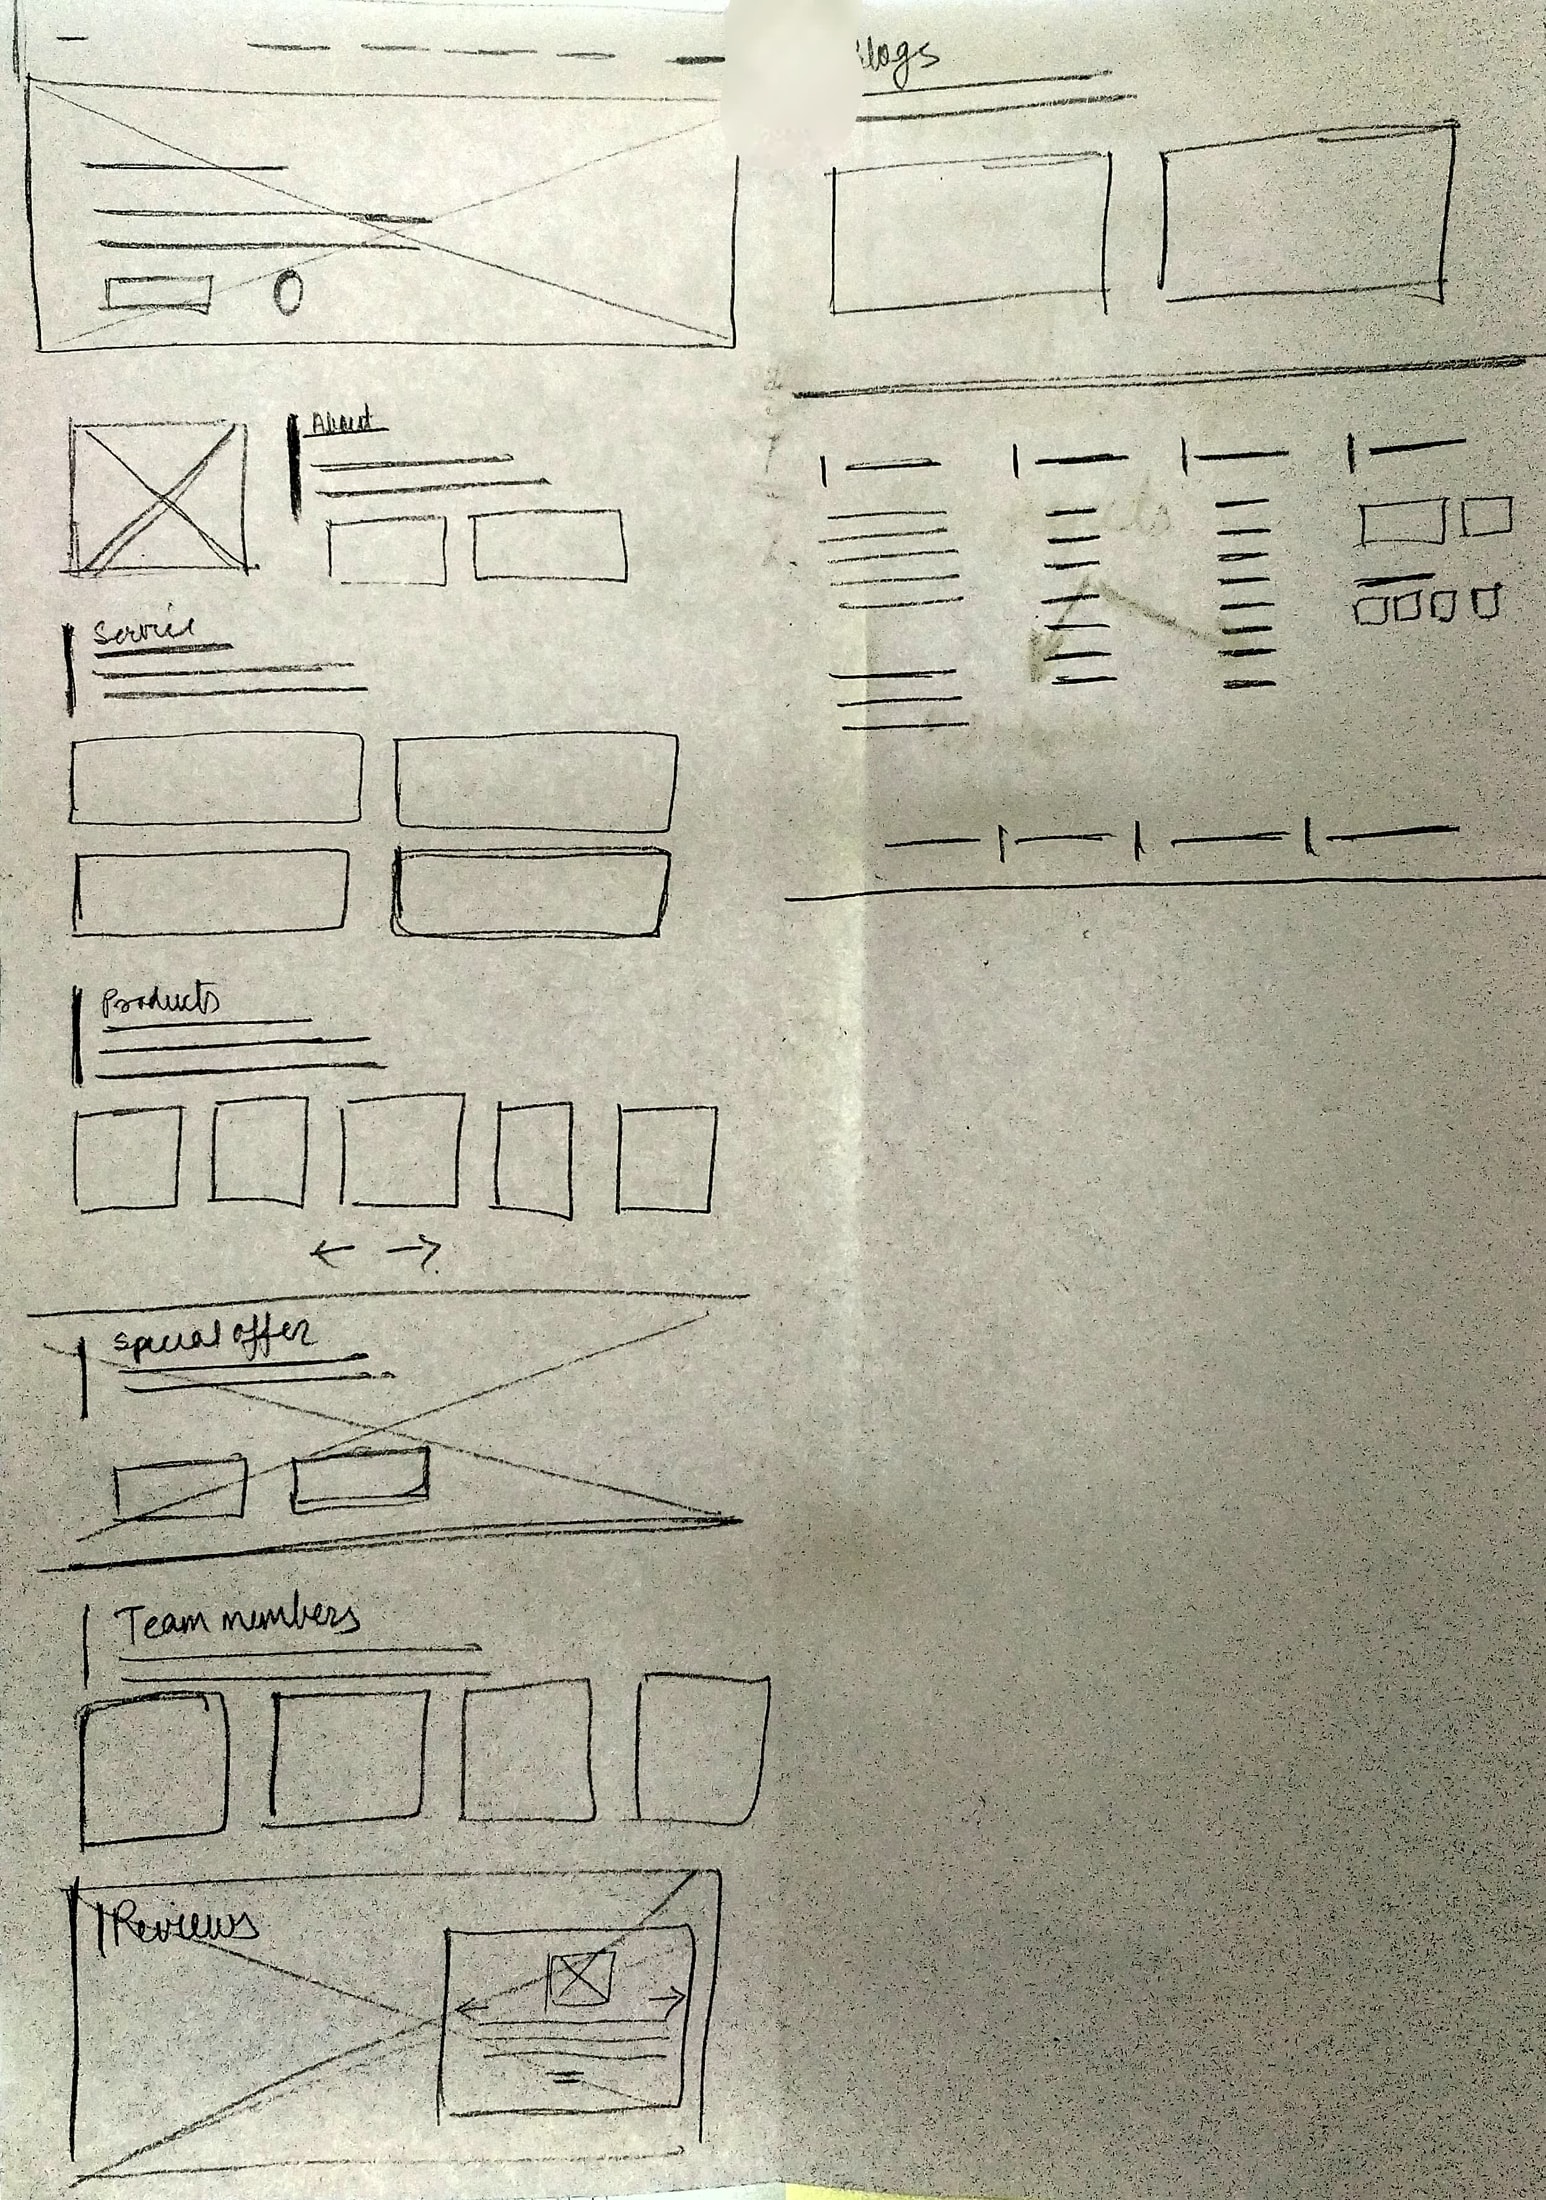 About
Service
Products
Special offer
Team members
Reviews
logs